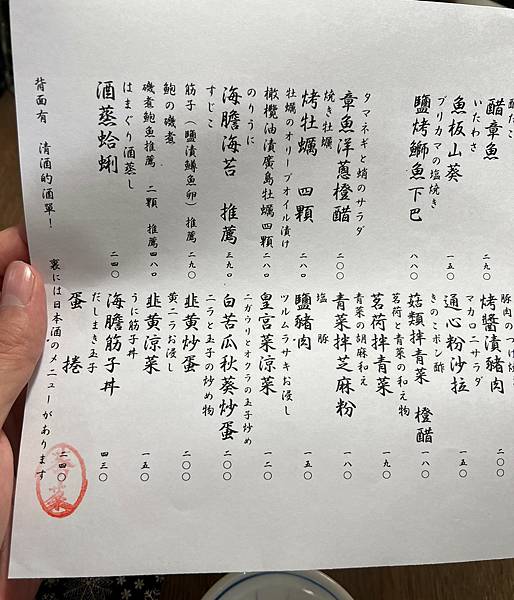 醋章魚 二〇〇
いたわさ
魚板山葵 一五〇
ブリカマの塩焼き
鹽烤鰤魚下巴 二八〇
タマネギと蛸のサラダ
章魚洋蔥橙醋 二〇〇
焼き牡蠣
烤牡蠣 四顆 一八〇
牡蠣のオリーブオイル漬け
橄欖油漬廣島牡蠣四顆 二八〇
のりうに
海膽海苔 推薦 三九〇
すじこ
筋子（鹽漬鱒魚卵）推薦 二九〇
鮑の磯煮
磯煮鮑魚推薦 二顆 推薦 四八〇
はまぐり酒蒸し
酒蒸蛤蜊 二四〇
豚肉のつけ焼
烤醬漬豬肉 二〇〇
マカロニサラダ
通心粉沙拉 一五〇
きのこポン酢
菇類拌青菜 橙醋 一八〇
茗荷と青菜の和え物
茗荷拌青菜 一九〇
青菜の胡麻和え
青菜拌芝麻粉 一八〇
塩豚
鹽豬肉 一五〇
ツルムラサキお浸し
皇宮菜涼菜 一二〇
ニガウリとオクラの玉子炒め
白苦瓜秋葵炒蛋 二〇〇
ニラと玉子の炒め物
韭黃炒蛋 二〇〇
黄ニラお浸し
韭黃涼菜 一五〇
うに筋子丼
海膽筋子丼 四三〇
だしまき玉子
蛋捲 二四〇
背面有 清酒的酒單！ 裏には日本酒のメニューがあります